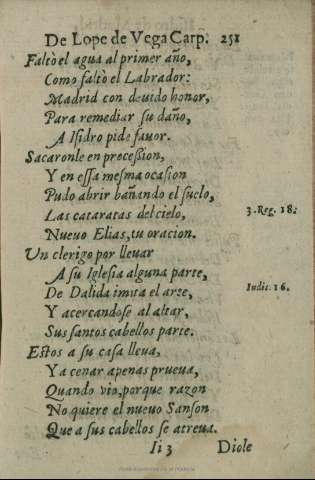 De Lope de Vega Carp. 251
Faltò el agua al primer año,
Como faltò el Labrador:
Madrid con deuido honor,
Para remediar su daño,
A Isidro pide fauor.
Sacaronle en precession,
Y en essa mesma ocasion
Pudo abrir bañando el suelo,
Las cataratas del cielo,
3. Reg. 18.
Nueuo Elias, tu oracion.
Un clerigo por lleuar
A su Iglesia alguna parte,
De Dalida imita el arte,
Iudic. 16.
Y acercandose al altar,
Sus santos cabellos parte.
Estos a su casa lleua,
Y a cenar apenas prueua,
Quando vio, porque razon
No quiere el nueuo Sanson
Que a sus cabellos se atreua.
Ii 3 Diole